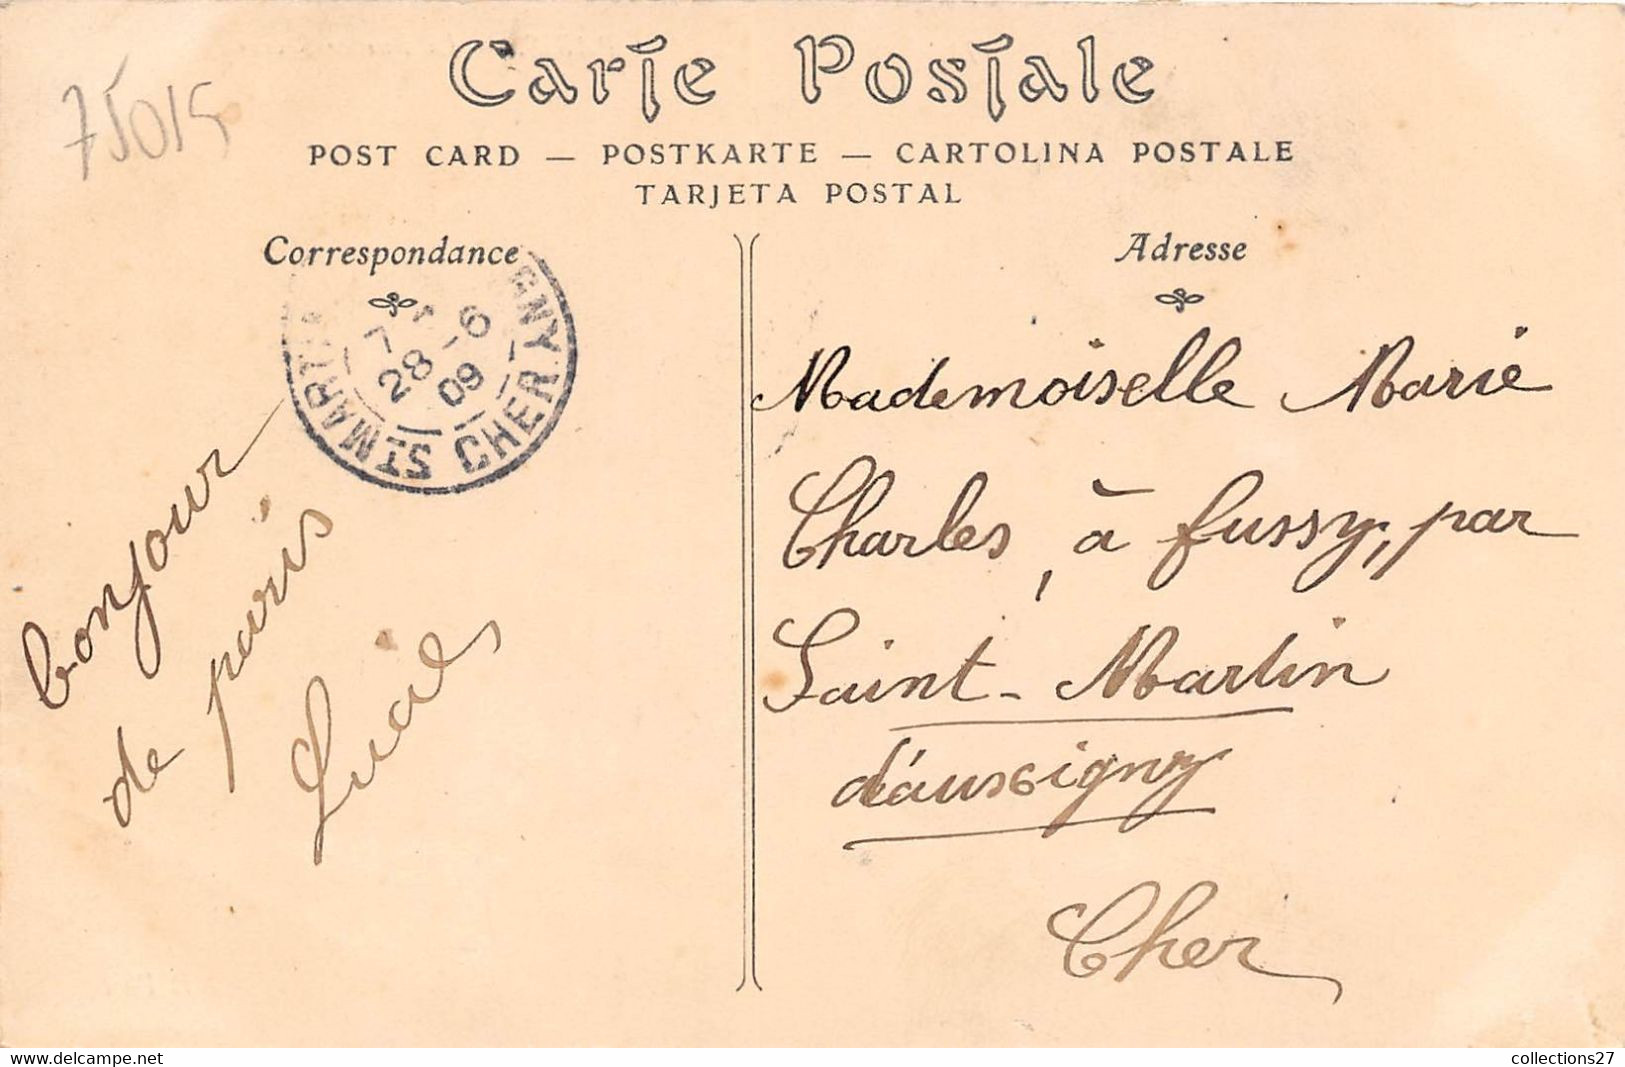 75015
Carte Postale
POST CARD — POSTKARTE — CARTOLINA POSTALE
TARJETA POSTAL
Correspondance
Adresse
28 - 6
09
ST MARTIN GNY
CHER
bonjour
de paris
Mademoiselle Marie
Charles, à fussy, par
Saint-Martin
d'auxigny
Cher
collections27